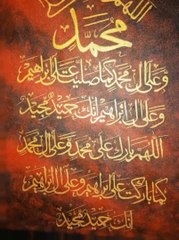 محمد
وعلى آل محمد كما صليت على إبراهيم
وعلى آل إبراهيم إنك حميد مجيد
اللهم بارك على محمد وعلى آل محمد
كما باركت على إبراهيم وعلى آل إبراهيم
إنك حميد مجيد